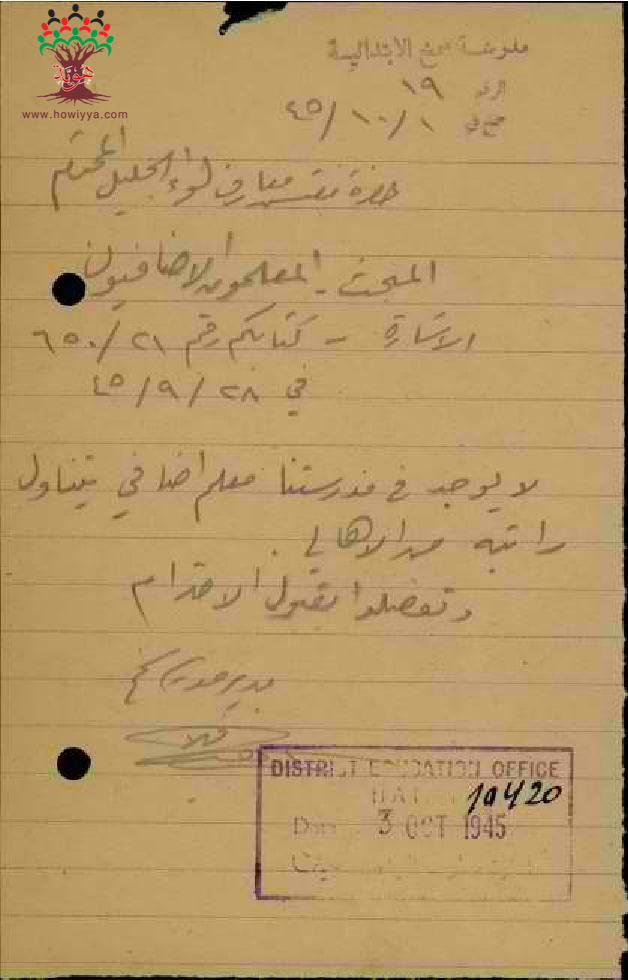 هوية
www.howiyya.com
مدرسة سمخ الابتدائية
الرقم ١٩
سمخ في ٤٥/١٠/١
حضرة مفتش معارف لواء الجليل المحترم
المبحث - المعلمون الاضافيون
الاشارة - كتابكم رقم ٦٥٠/٢١
في ٤٥/٩/٢٨
لا يوجد في مدرستنا معلم اضافي يتناول
راتبه من الاهالي .
وتفضلوا بقبول الاحترام
مدير مدرسة سمخ
DISTRICT EDUCATION OFFICE
10420
Date 3 OCT 1945